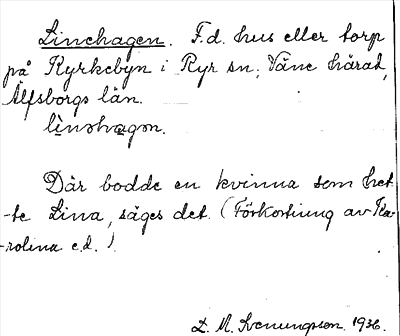 Linehagen. F.d. hus eller torp
på Kyrkebyn i Ryr sn, Väne härad,
Älfsborgs län.
lìnəhagən.
Där bodde en kvinna som het-
-te Lina, säges det. (Förkortning av Ka-
-rolina e.d.)
1936.